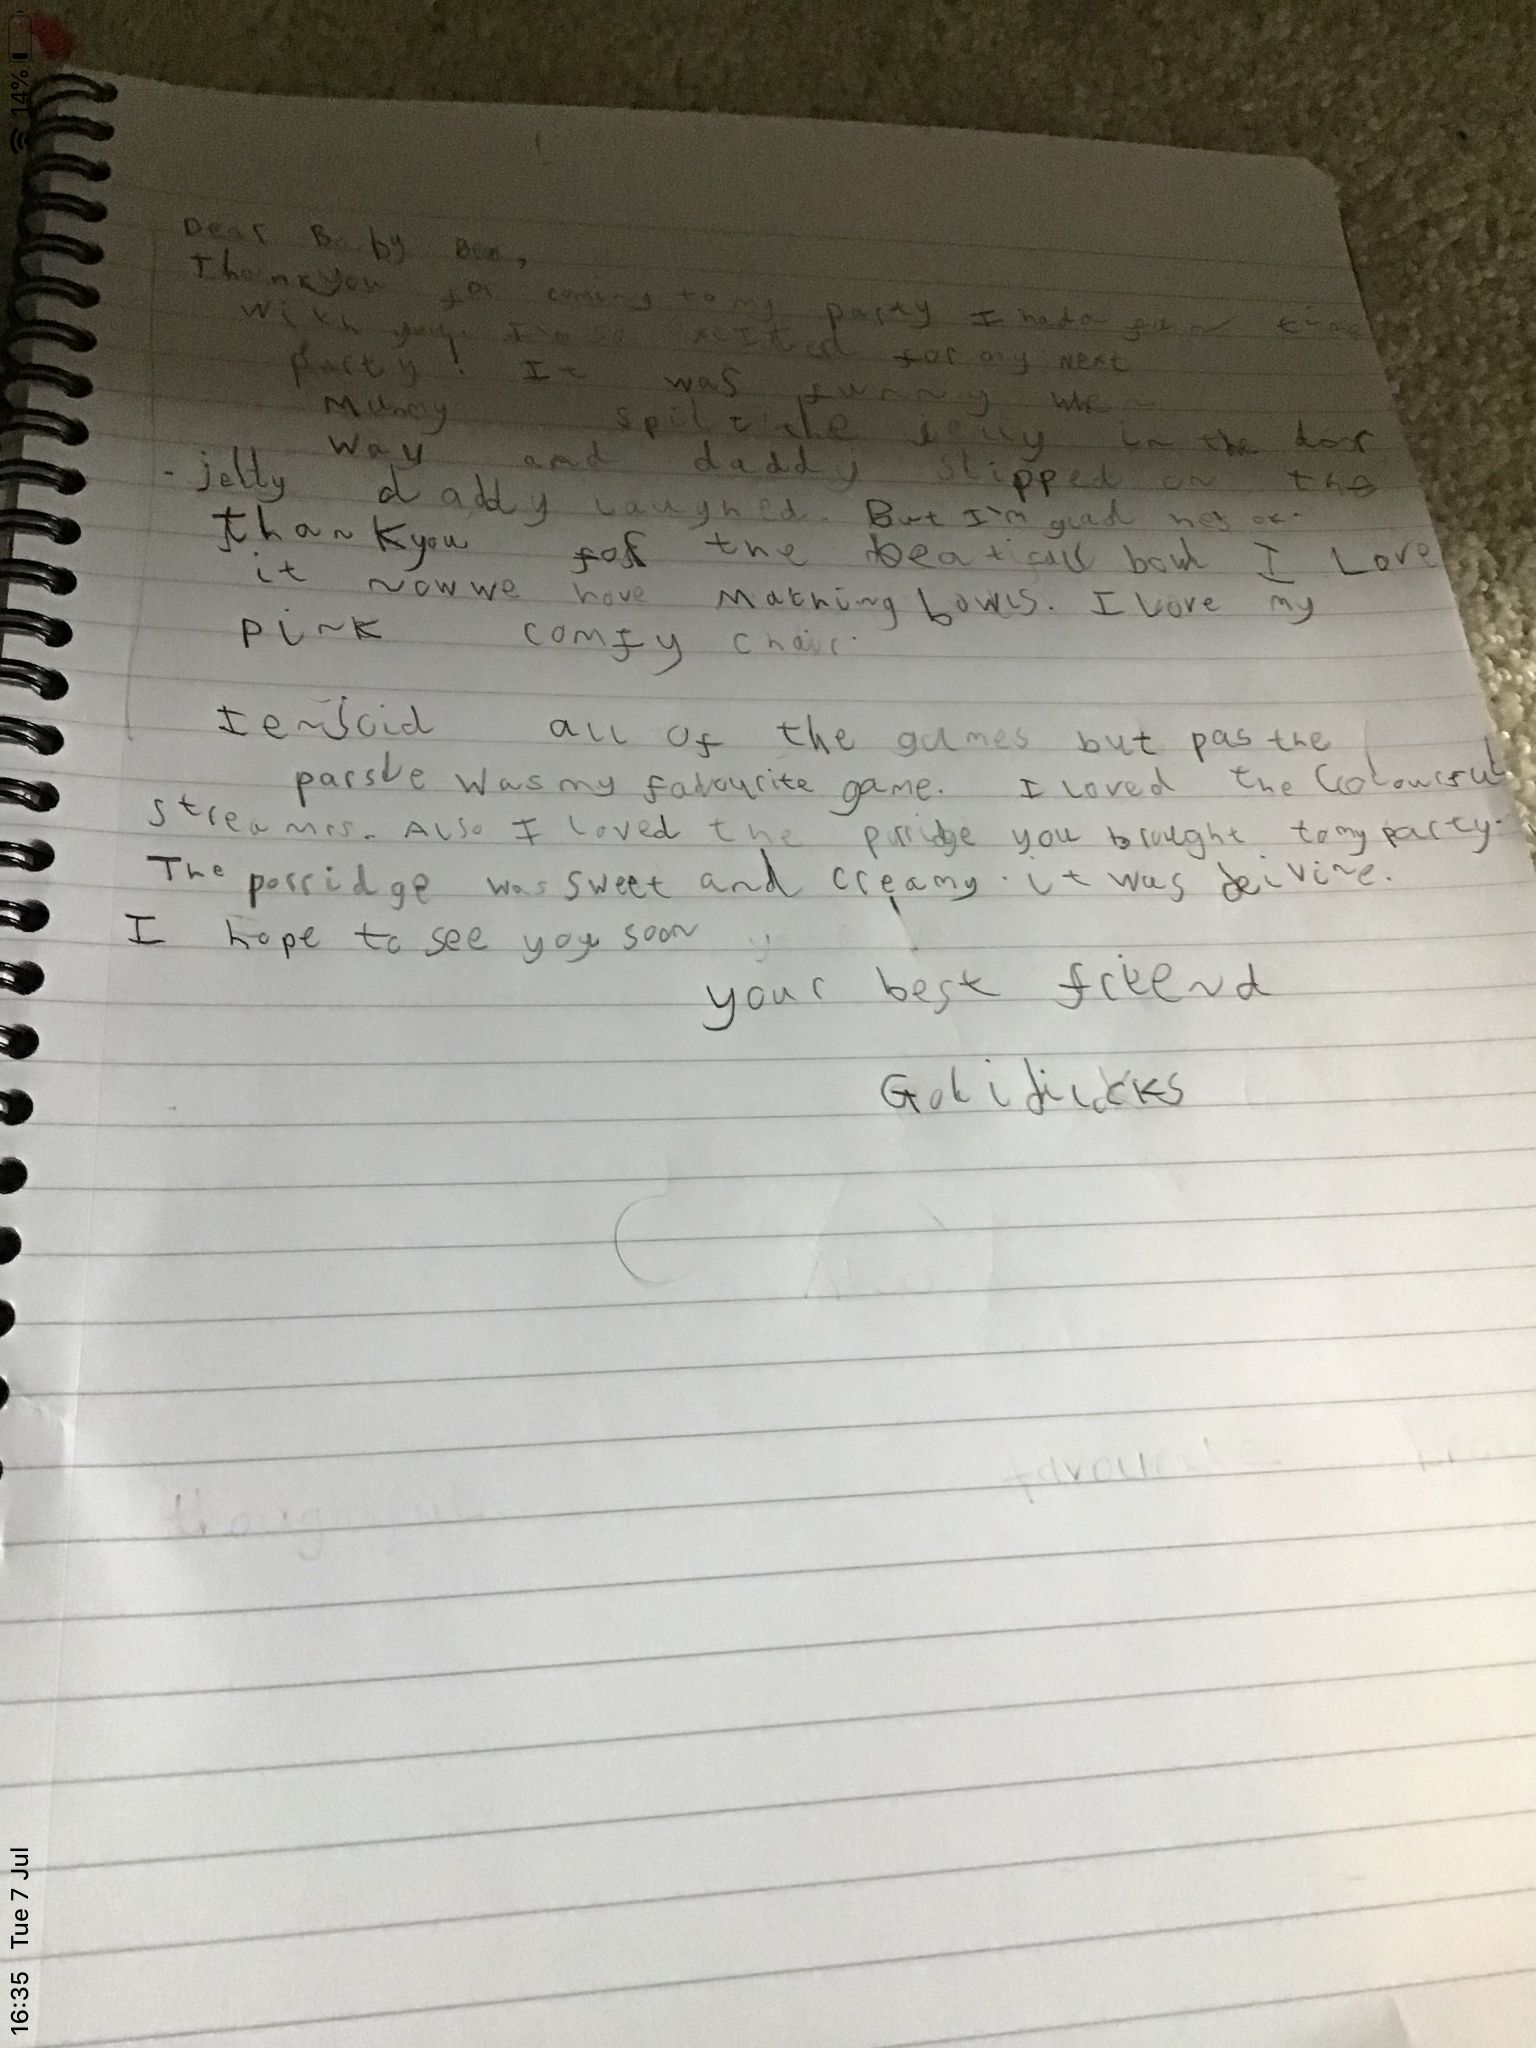 Dear Baby Bear,
Thankyou for coming to my party I had a fun time
with you. I'm so exited for my next
party! It was funny when
Mummy spilt the jelly in the door
way and daddy slipped on the
jelly daddy laughed. But I'm glad hes ok.
thankyou for the beatifull bowl I Love
it now we have Matching bowls. I love my
pink comfy chair.
I enjoid all of the games but pas the
parsle was my favourite game. I loved the colourful
streamrs. Also I loved the porridge you brought to my party.
The porridge was sweet and creamy. it was deivine.
I hope to see you soon
your best friend
Goldilocks
favourite
16:35 Tue 7 Jul
14%